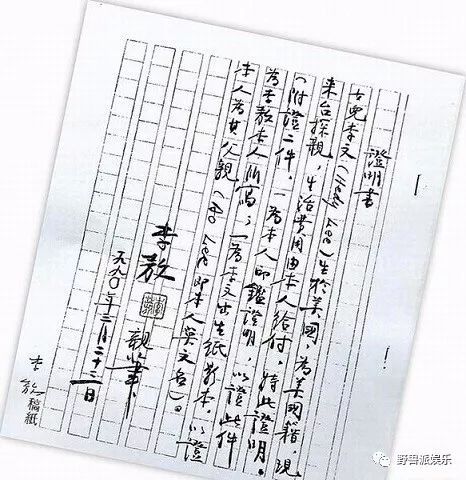 證明書
女兒李文(Hedy Lee)生於美國,為美國籍,現
來台探親,生活費用由本人給付,特此證明。
(附證二件,一為本人印鑑證明,以證此件
為李敖本人所寫;一為李文出生紙影本,以證
本人為其父親(Ao Lee即本人英文名)。
李敖 親筆
一九九〇年三月二十二日
李敖稿紙
野兽派娱乐